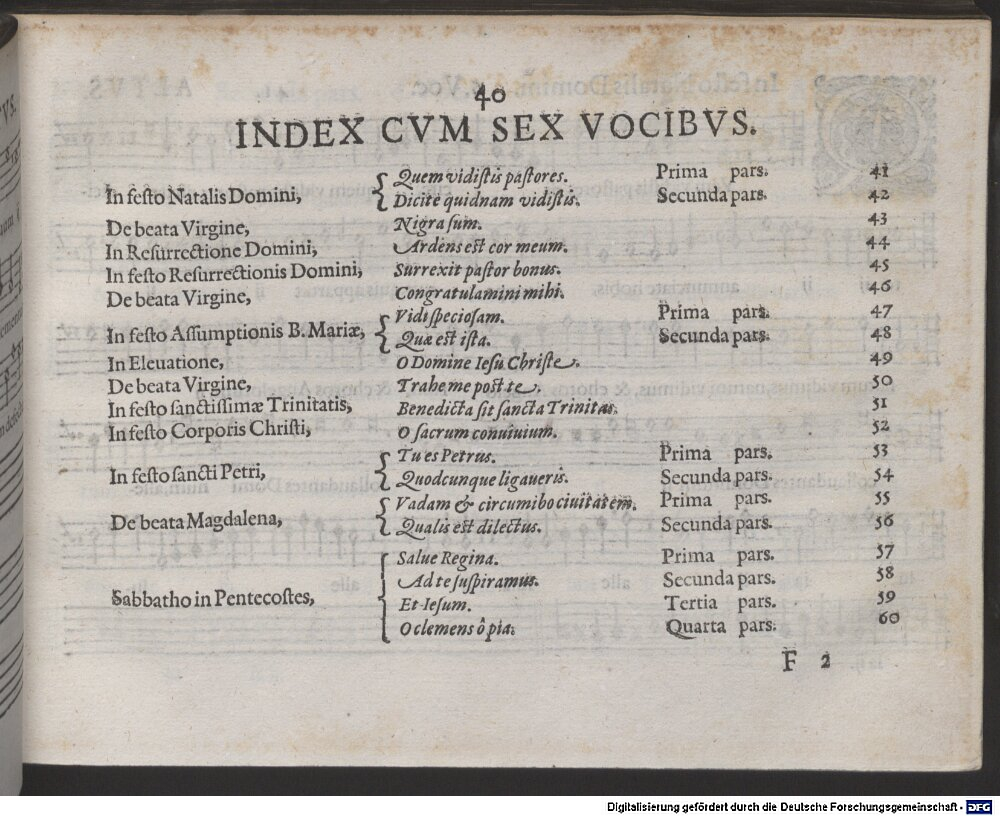 40
INDEX CVM SEX VOCIBVS.
In festo Natalis Domini, Quem vidistis pastores. Prima pars. 41
Dicite quidnam vidistis. Secunda pars. 42
De beata Virgine, Nigra sum. 43
In Resurrectione Domini, Ardens est cor meum. 44
In festo Resurrectionis Domini, Surrexit pastor bonus. 45
De beata Virgine, Congratulamini mihi. 46
In festo Assumptionis B. Mariæ, Vidi speciosam. Prima pars. 47
Quæ est ista. Secunda pars. 48
In Eleuatione, O Domine Iesu Christe. 49
De beata Virgine, Trahe me post te. 50
In festo sanctissimæ Trinitatis, Benedicta sit sancta Trinitas. 51
In festo Corporis Christi, O sacrum conuiuium. 52
In festo sancti Petri, Tu es Petrus. Prima pars. 53
Quodcunque ligaueris. Secunda pars. 54
De beata Magdalena, Vadam & circumibo ciuitatem. Prima pars. 55
Qualis est dilectus. Secunda pars. 56
Sabbatho in Pentecostes, Salue Regina. Prima pars. 57
Ad te suspiramus. Secunda pars. 58
Et Iesum. Tertia pars. 59
O clemens ô pia. Quarta pars. 60
F 2
Digitalisierung gefördert durch die Deutsche Forschungsgemeinschaft - DFG